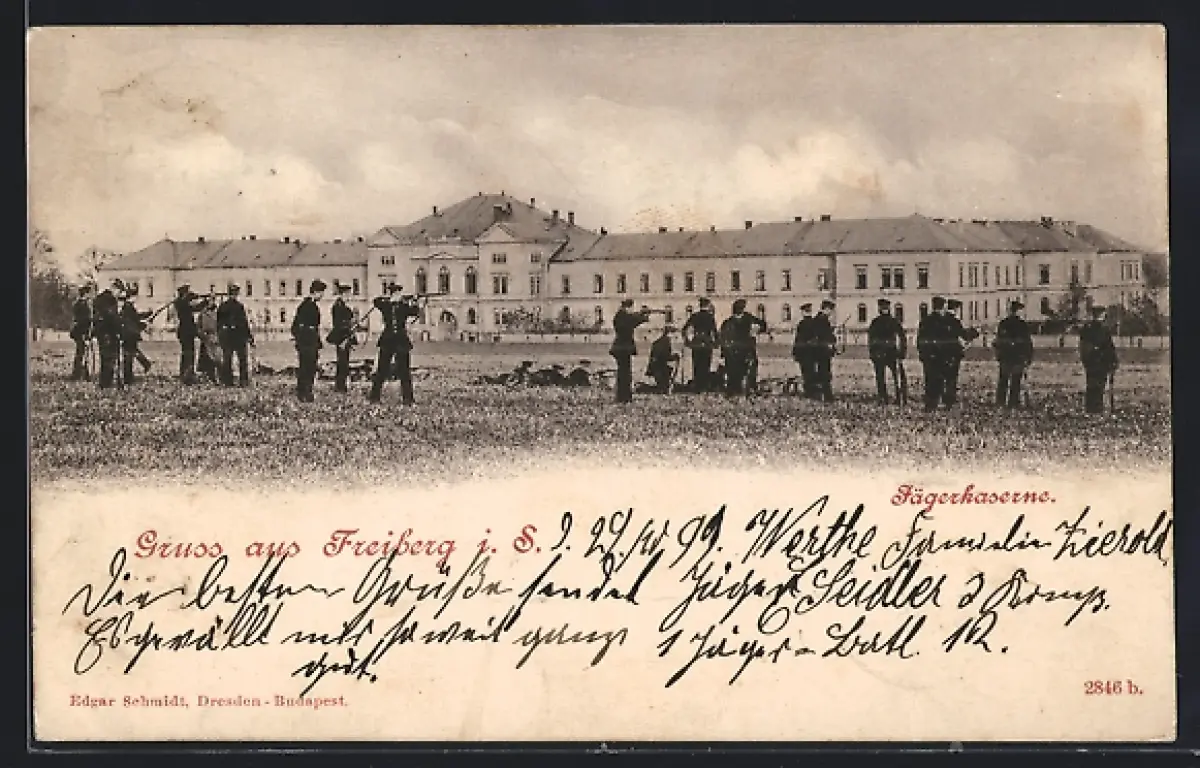 Jägerkaserne.
Gruss aus Freiberg i. S. d. 29./10 99. Werthe Familie Zierold
Die besten Grüße sendet Jäger Seidler 3 Komp.
Es gevällt mir so weit ganz 1 Jäger-Batl. 12.
gut.
Edgar Schmidt, Dresden-Budapest.
2846 b.